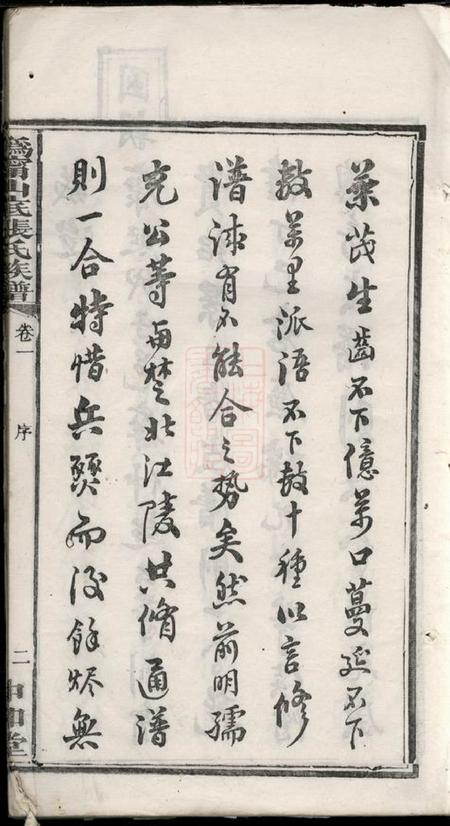 葉茂生齒不下億萬口蔓延不下
數萬里派語不下數十種以言修
譜洵有不能合之勢矣然前明孺
克公等南楚北江陵共脩通譜
則一合特惜兵燹而後餘燼無
為甯山底張氏族譜
卷一
序
二
中和堂